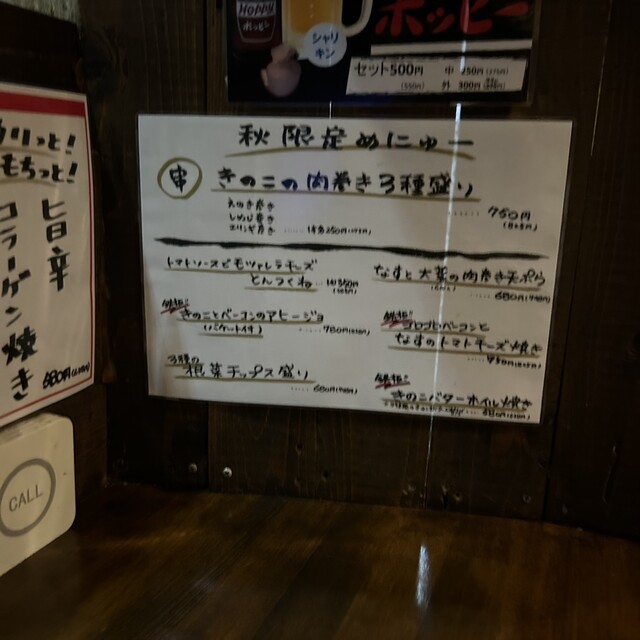 HOPPY
ホッピー
シャリキン
ホッピー
セット500円 中 250円
外 300円
カリッと!
もちっと!
旨辛
コラーゲン焼き
680円
秋限定めにゅー
串 きのこの肉巻き3種盛り
えのき巻き
しめじ巻き
エリンギ巻き
750円
トマトソースとモツァレラチーズ
とんつくね
なすと大葉の肉巻き天ぷら
680円
きのことベーコンのアヒージョ
(バケット付)
780円
なすのトマトチーズ焼き
3種の
根菜チップス盛り
きのこバターホイル焼き
CALL